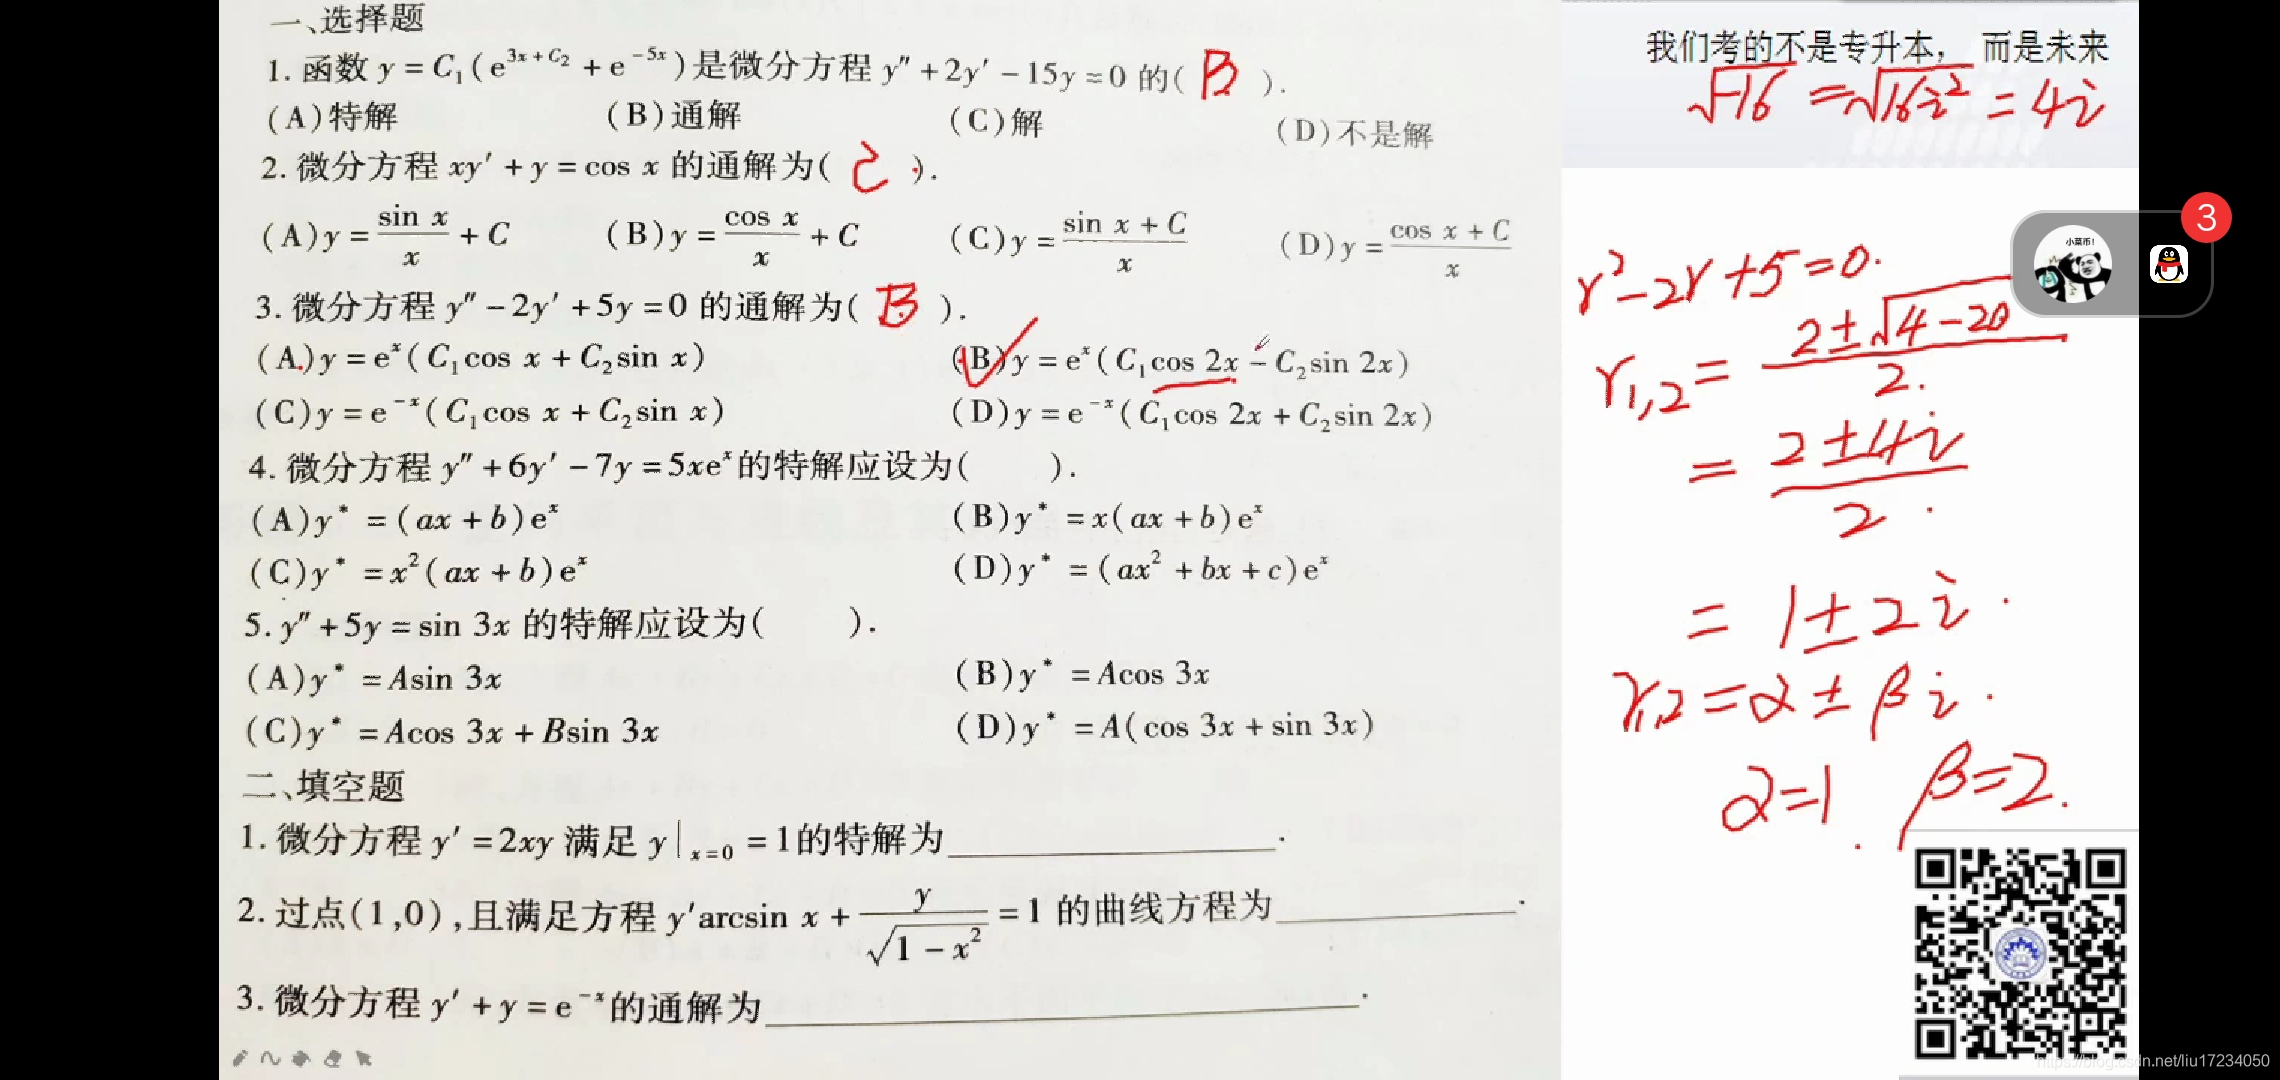 一、选择题
1. 函数 y = C₁(e^(3x+C₂) + e^(-5x)) 是微分方程 y″ + 2y′ - 15y = 0 的( B ).
(A)特解 (B)通解 (C)解 (D)不是解
2. 微分方程 xy′ + y = cos x 的通解为( C ).
(A) y = sin x / x + C (B) y = cos x / x + C (C) y = (sin x + C) / x (D) y = (cos x + C) / x
3. 微分方程 y″ - 2y′ + 5y = 0 的通解为( B ).
(A) y = eˣ(C₁cos x + C₂sin x) (B) y = eˣ(C₁cos 2x - C₂sin 2x)
(C) y = e⁻ˣ(C₁cos x + C₂sin x) (D) y = e⁻ˣ(C₁cos 2x + C₂sin 2x)
4. 微分方程 y″ + 6y′ - 7y = 5xeˣ 的特解应设为( ).
(A) y* = (ax + b)eˣ (B) y* = x(ax + b)eˣ
(C) y* = x²(ax + b)eˣ (D) y* = (ax² + bx + c)eˣ
5. y″ + 5y = sin 3x 的特解应设为( ).
(A) y* = Asin 3x (B) y* = Acos 3x
(C) y* = Acos 3x + Bsin 3x (D) y* = A(cos 3x + sin 3x)
二、填空题
1. 微分方程 y′ = 2xy 满足 y|ₓ₌₀ = 1的特解为 .
2. 过点(1,0),且满足方程 y′arcsin x + y / √(1 - x²) = 1 的曲线方程为 .
3. 微分方程 y′ + y = e⁻ˣ 的通解为 .
我们考的不是专升本， 而是未来
√-16 = √16i² = 4i
小菜币!
3
r² - 2r + 5 = 0.
r₁,₂ = (2 ± √4-20) / 2.
= (2 ± 4i) / 2.
= 1 ± 2i.
r₁,₂ = α ± βi.
α = 1. β = 2.
https://blog.csdn.net/liu17234050